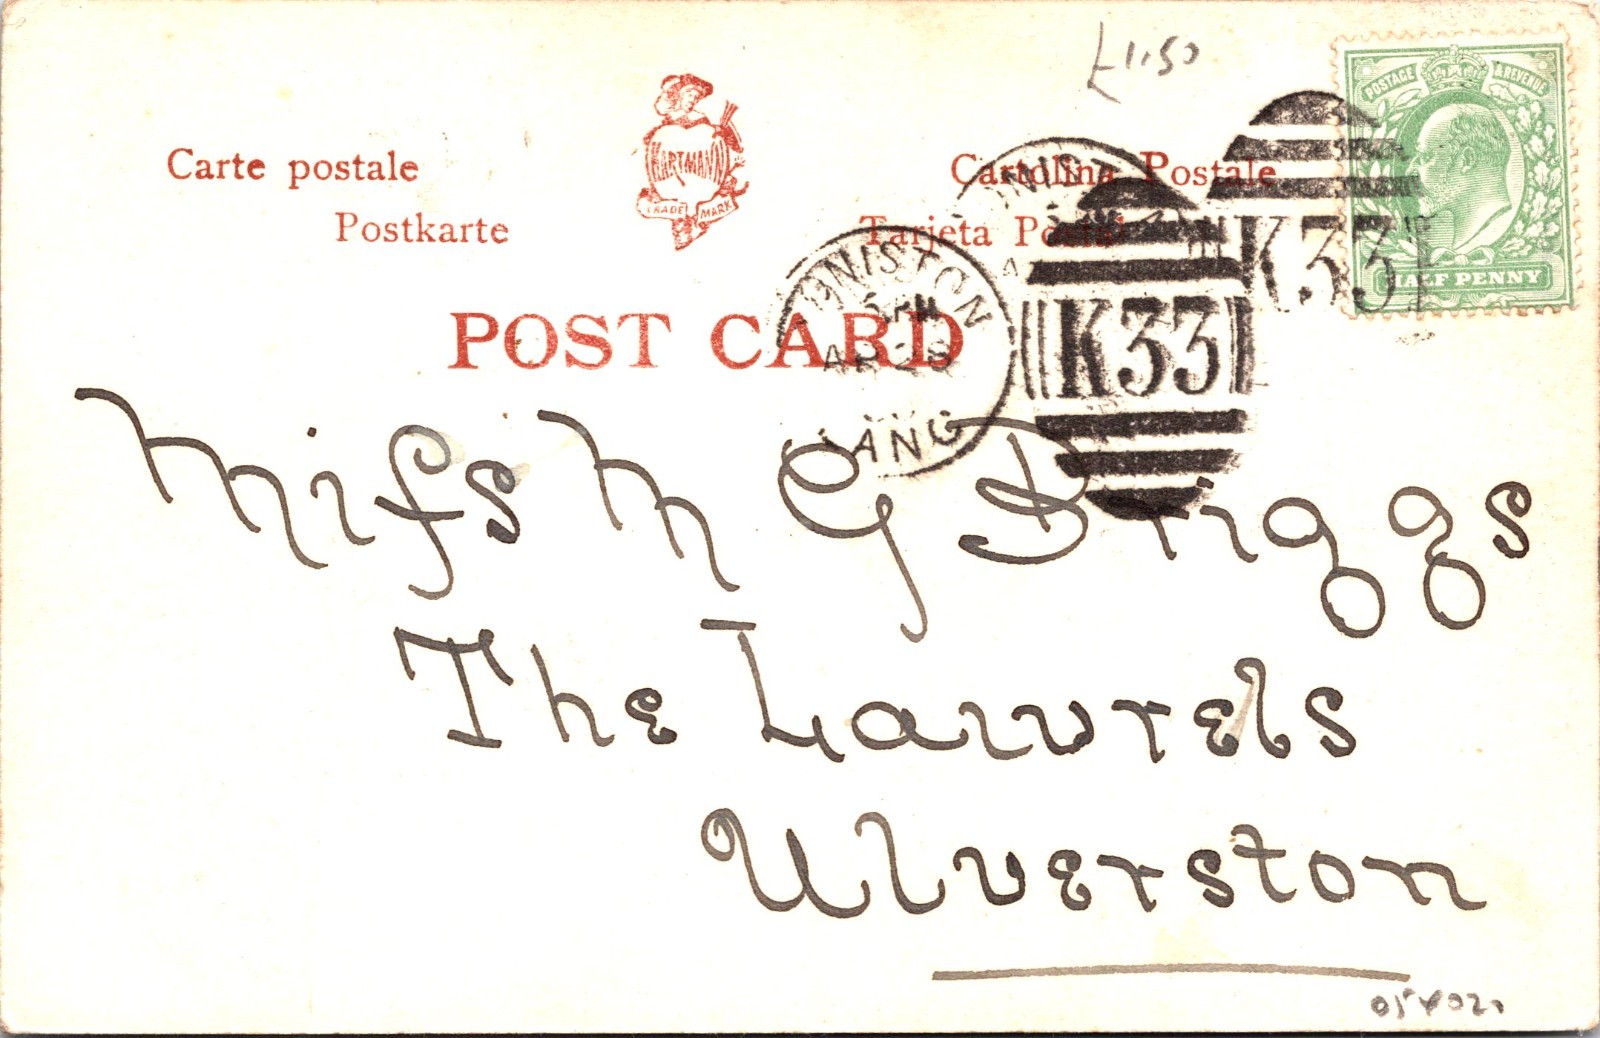 £1.50
POSTAGE & REVENUE
HALF PENNY
Carte postale
Cartolina Postale
HARTMANN
TRADE MARK
Postkarte
Tarjeta Postal
POST CARD
CONISTON
AP 28
LANC
K33
K33
Miss M G Briggs
The Laurels
Ulverston